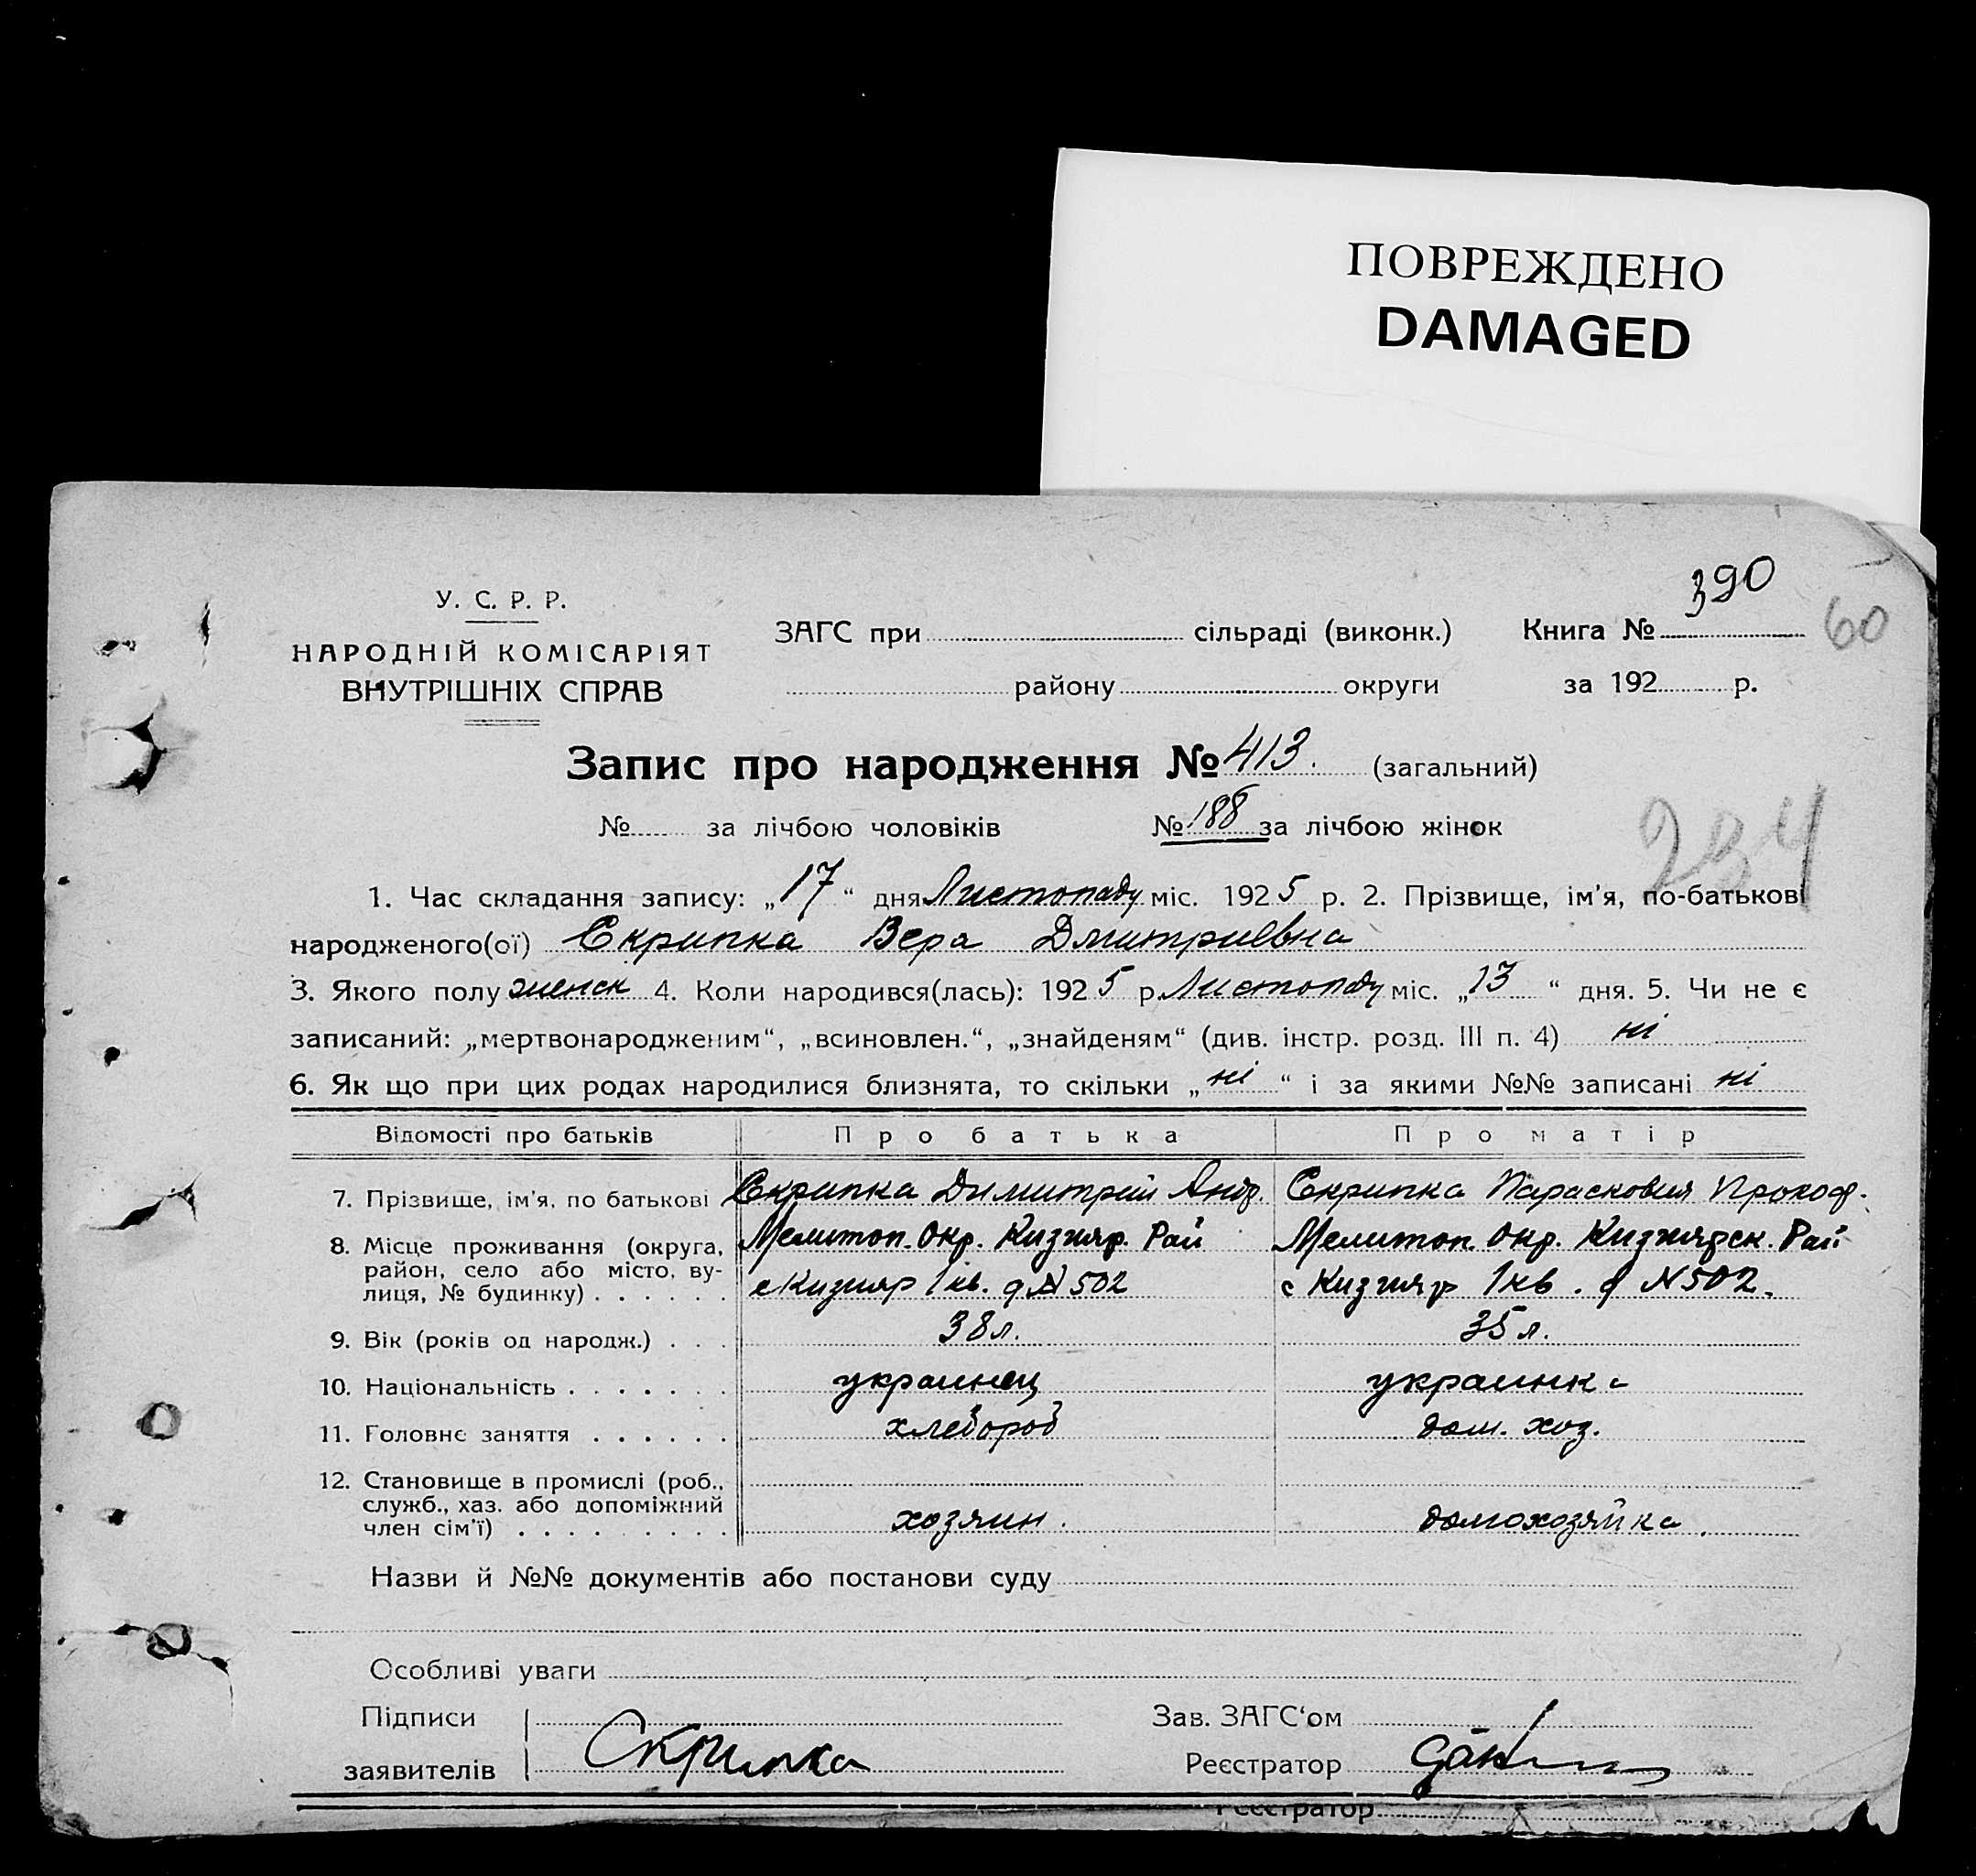 ПОВРЕЖДЕНО
DAMAGED
390
60
У. С. Р. Р.
НАРОДНІЙ КОМІСАРІЯТ
ВНУТРІШНІХ СПРАВ
ЗАГС при сільраді (виконк.) Книга №
району округи за 192 р.
Запис про народження № 413. (загальний)
№ за лічбою чоловіків № 188 за лічбою жінок
234
1. Час складання запису: „17“ дня Листопаду міс. 1925 р. 2. Прізвище, ім'я, по-батькові
народженого(ої) Скрипка Вера Дмитриевна
3. Якого полу женск 4. Коли народився(лась): 1925 р. Листопаду міс. „13“ дня. 5. Чи не є
записаний: „мертвонародженим“, „всиновлен.“, „знайденям“ (див. інстр. розд. III п. 4) ні
6. Як що при цих родах народилися близнята, то скільки „ні“ і за якими №№ записані ні
Відомості про батьків Про батька Про матір
7. Прізвище, ім'я, по батькові Скрипка Димитрий Анд. Скрипка Парасковия Прокоф.
8. Місце проживання (округа, Мелитоп. Окр. Кизияр. Рай Мелитоп. Окр. Кизиярск. Рай
район, село або місто, ву-
лиця, № будинку) . . . . . . с Кизияр 1 кв. д N 502 с Кизияр 1 кв. д N 502.
9. Вік (років од народж.) . . . 38 л. 35 л.
10. Національність . . . . . . . украинец украинка
11. Головне заняття . . . . . . хлебороб дом. хоз.
12. Становище в промислі (роб.,
служб., хаз. або допоміжний
член сім'ї) . . . . . . . . . хозяин. домохозяйка.
Назви й №№ документів або постанови суду
Особливі уваги
Підписи Зав. ЗАГС'ом
заявителів Скрипка Реєстратор
Реєстратор